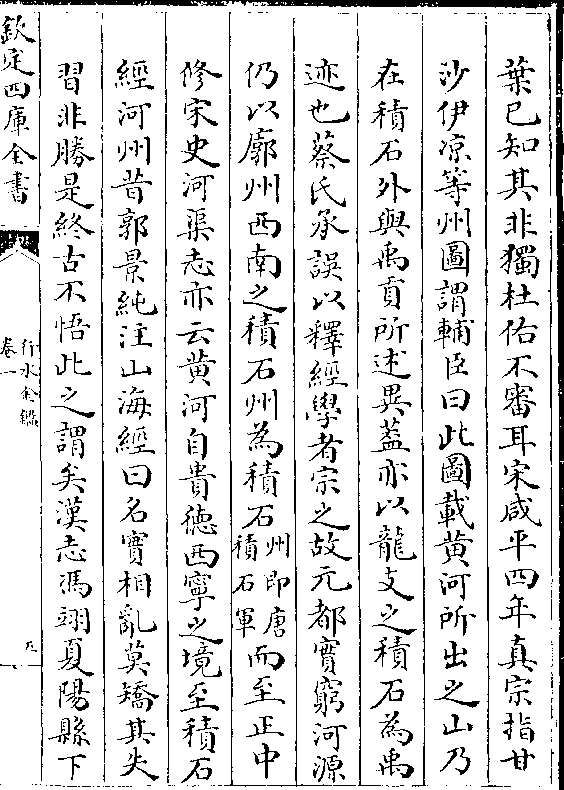 葉已知其非獨杜佑不審耳宋咸平四年真宗指甘
沙伊涼等州圖謂輔臣曰此圖載黄河所出之山乃
在積石外與禹貢所述異蓋亦以龍支之積石為禹
迹也蔡氏承誤以釋經學者宗之故元都實窮河源
仍以廓州西南之積石州為積石州即唐積石軍而至正中
修宋史河渠志亦云黄河自貴德西寧之境至積石
經河州昔郭景純注山海經曰名實相亂莫矯其失
習非勝是終古不悟此之謂矣漢志馮翊夏陽縣下
欽定四庫全書
行水金鑑
卷一
九